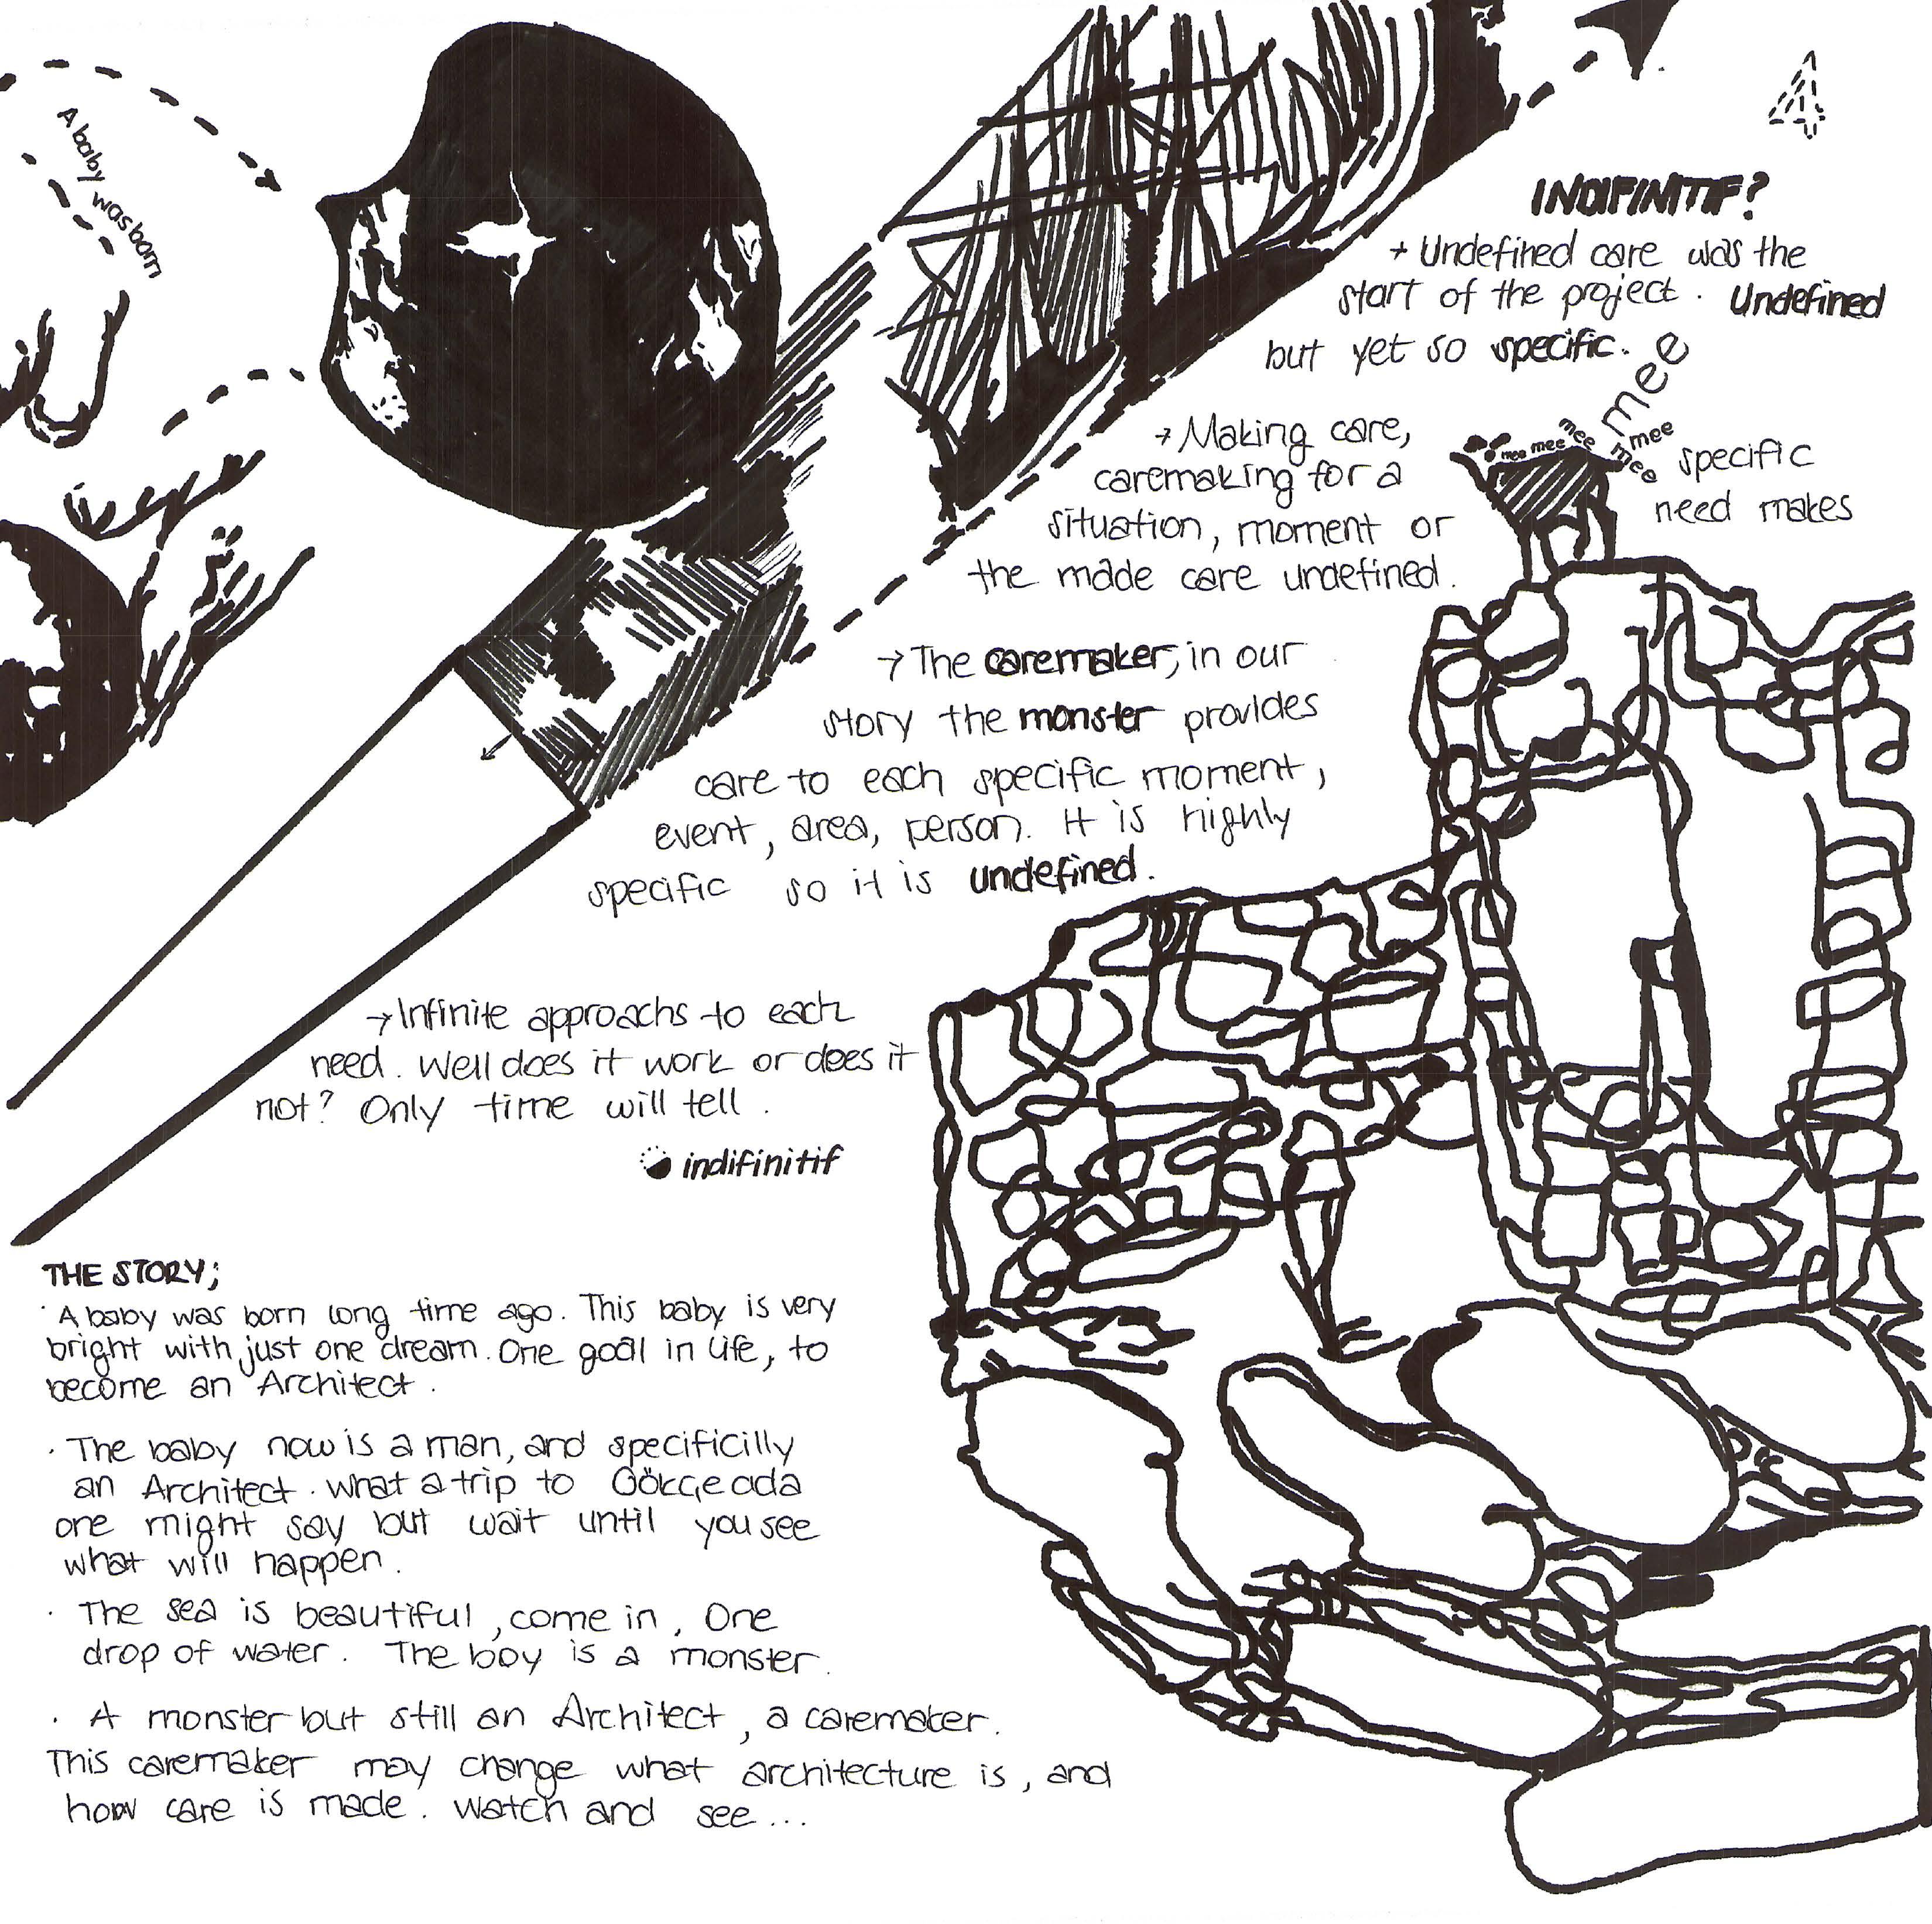 A baby was born
4
INDIFINITIF?
→ Undefined care was the
start of the project. Undefined
but yet so specific.
mee mee mee mee mee mee mee
→ Making care,
caremaking for a
situation, moment or
the made care undefined.
specific
need makes
→ The caremaker, in our
story the monster provides
care to each specific moment,
event, area, person. It is highly
specific so it is undefined.
→ Infinite approachs to each
need. Well does it work or does it
not? Only time will tell.
indifinitif
THE STORY;
· A baby was born long time ago. This baby is very
bright with just one dream. One goal in life, to
become an Architect.
· The baby now is a man, and specificilly
an Architect. what a trip to Gökçeada
one might say but wait until you see
what will happen.
· The sea is beautiful, come in, One
drop of water. The boy is a monster.
· A monster but still an Architect, a caremaker.
This caremaker may change what architecture is, and
how care is made. Watch and see...